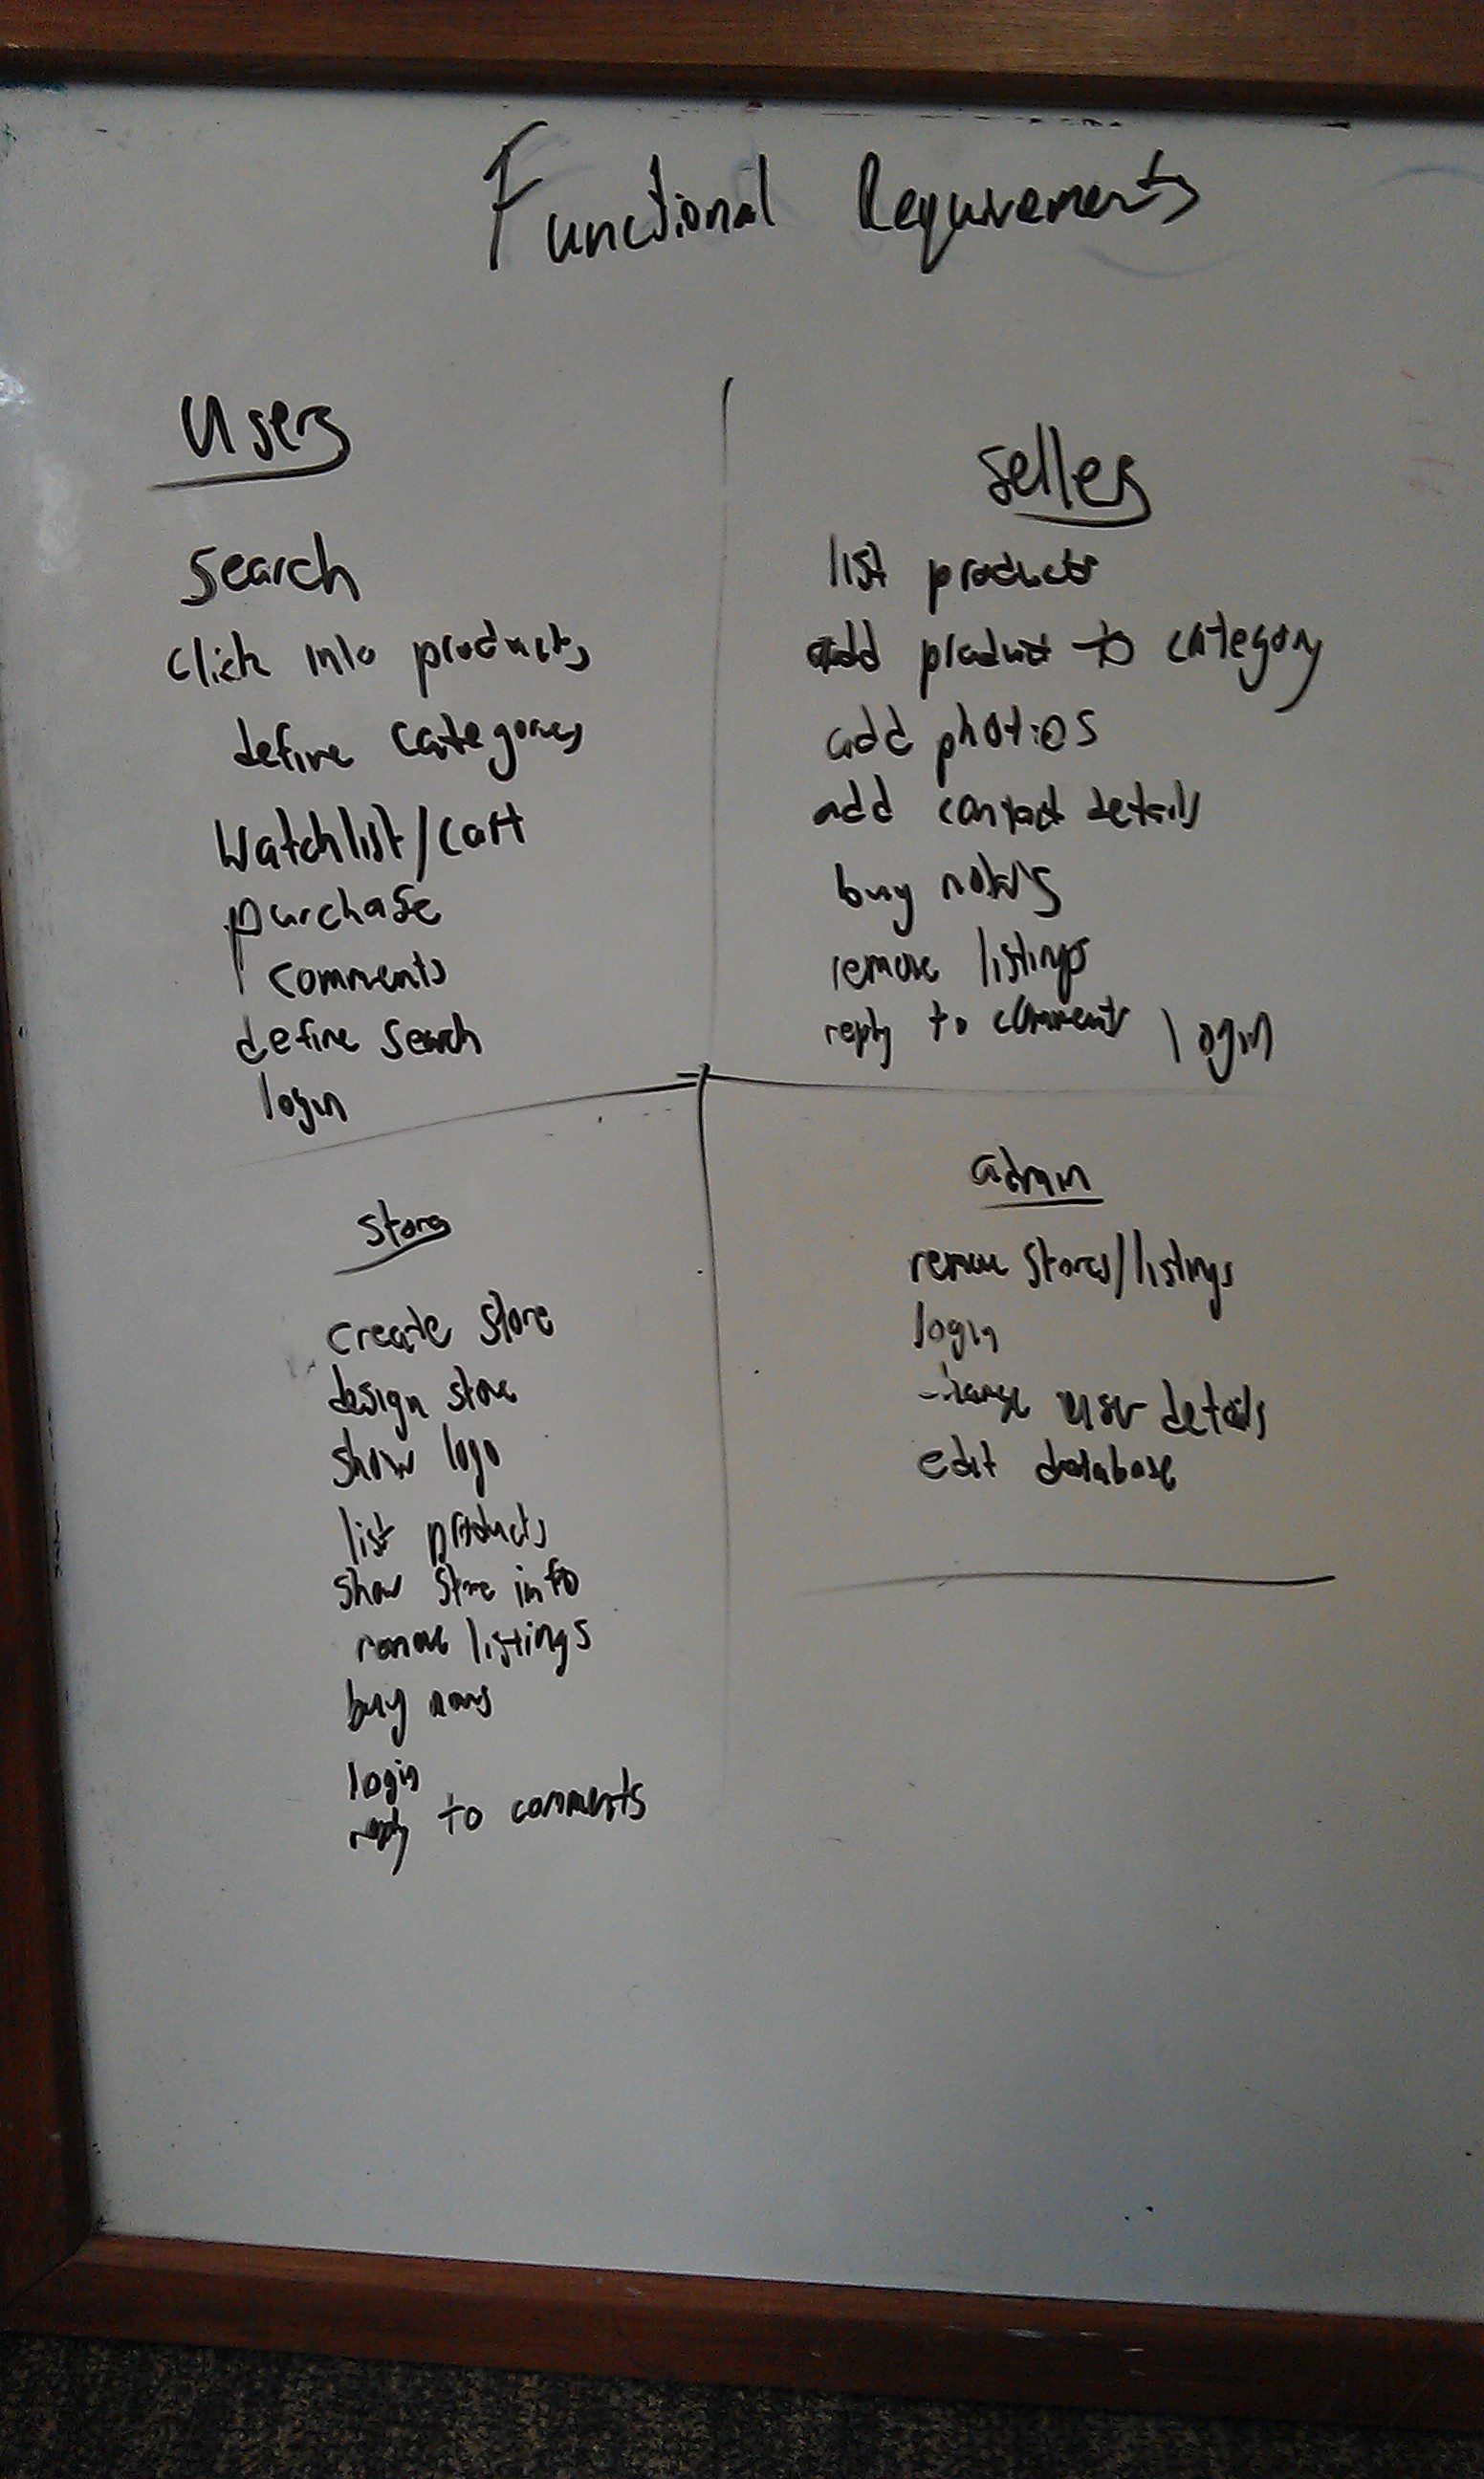 Functional Requirements
Users
Search
click into products
define categories
Watchlist/cart
purchase
comments
define search
login
sellers
list products
add product to category
add photos
add contact details
buy
remove listings
reply to comments login
stores
create store
design store
show logo
list products
show store info
remove listings
buy
login
reply to comments
admin
remove stores/listings
login
change user details
edit database